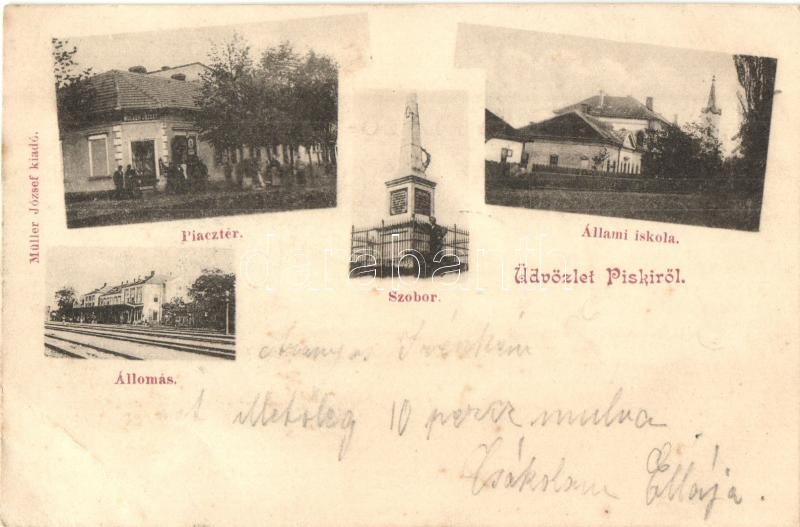 Müller József kiadó.
Piacztér.
Szobor.
Állami iskola.
Üdvözlet Piskiről.
Állomás.
darabanth
illetőleg 10 percz mulva
Csókolom Ellája